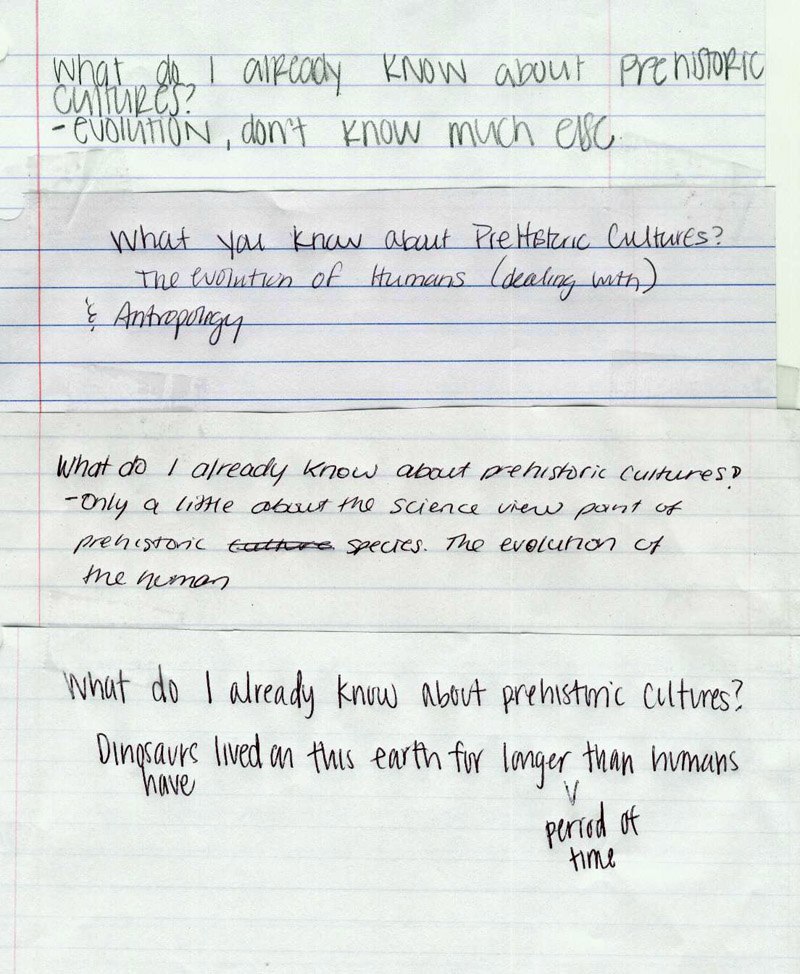 What do I already know about prehistoric
cultures?
-evolution, don't know much else.
What you know about PreHistoric Cultures?
The evolution of Humans (dealing with)
& Antropology
What do I already know about prehistoric cultures?
-Only a little about the science view point of
prehistoric culture species. The evolution of
the human
What do I already know about prehistoric cultures?
Dinosaurs lived on this earth for longer than humans
have
period of
time